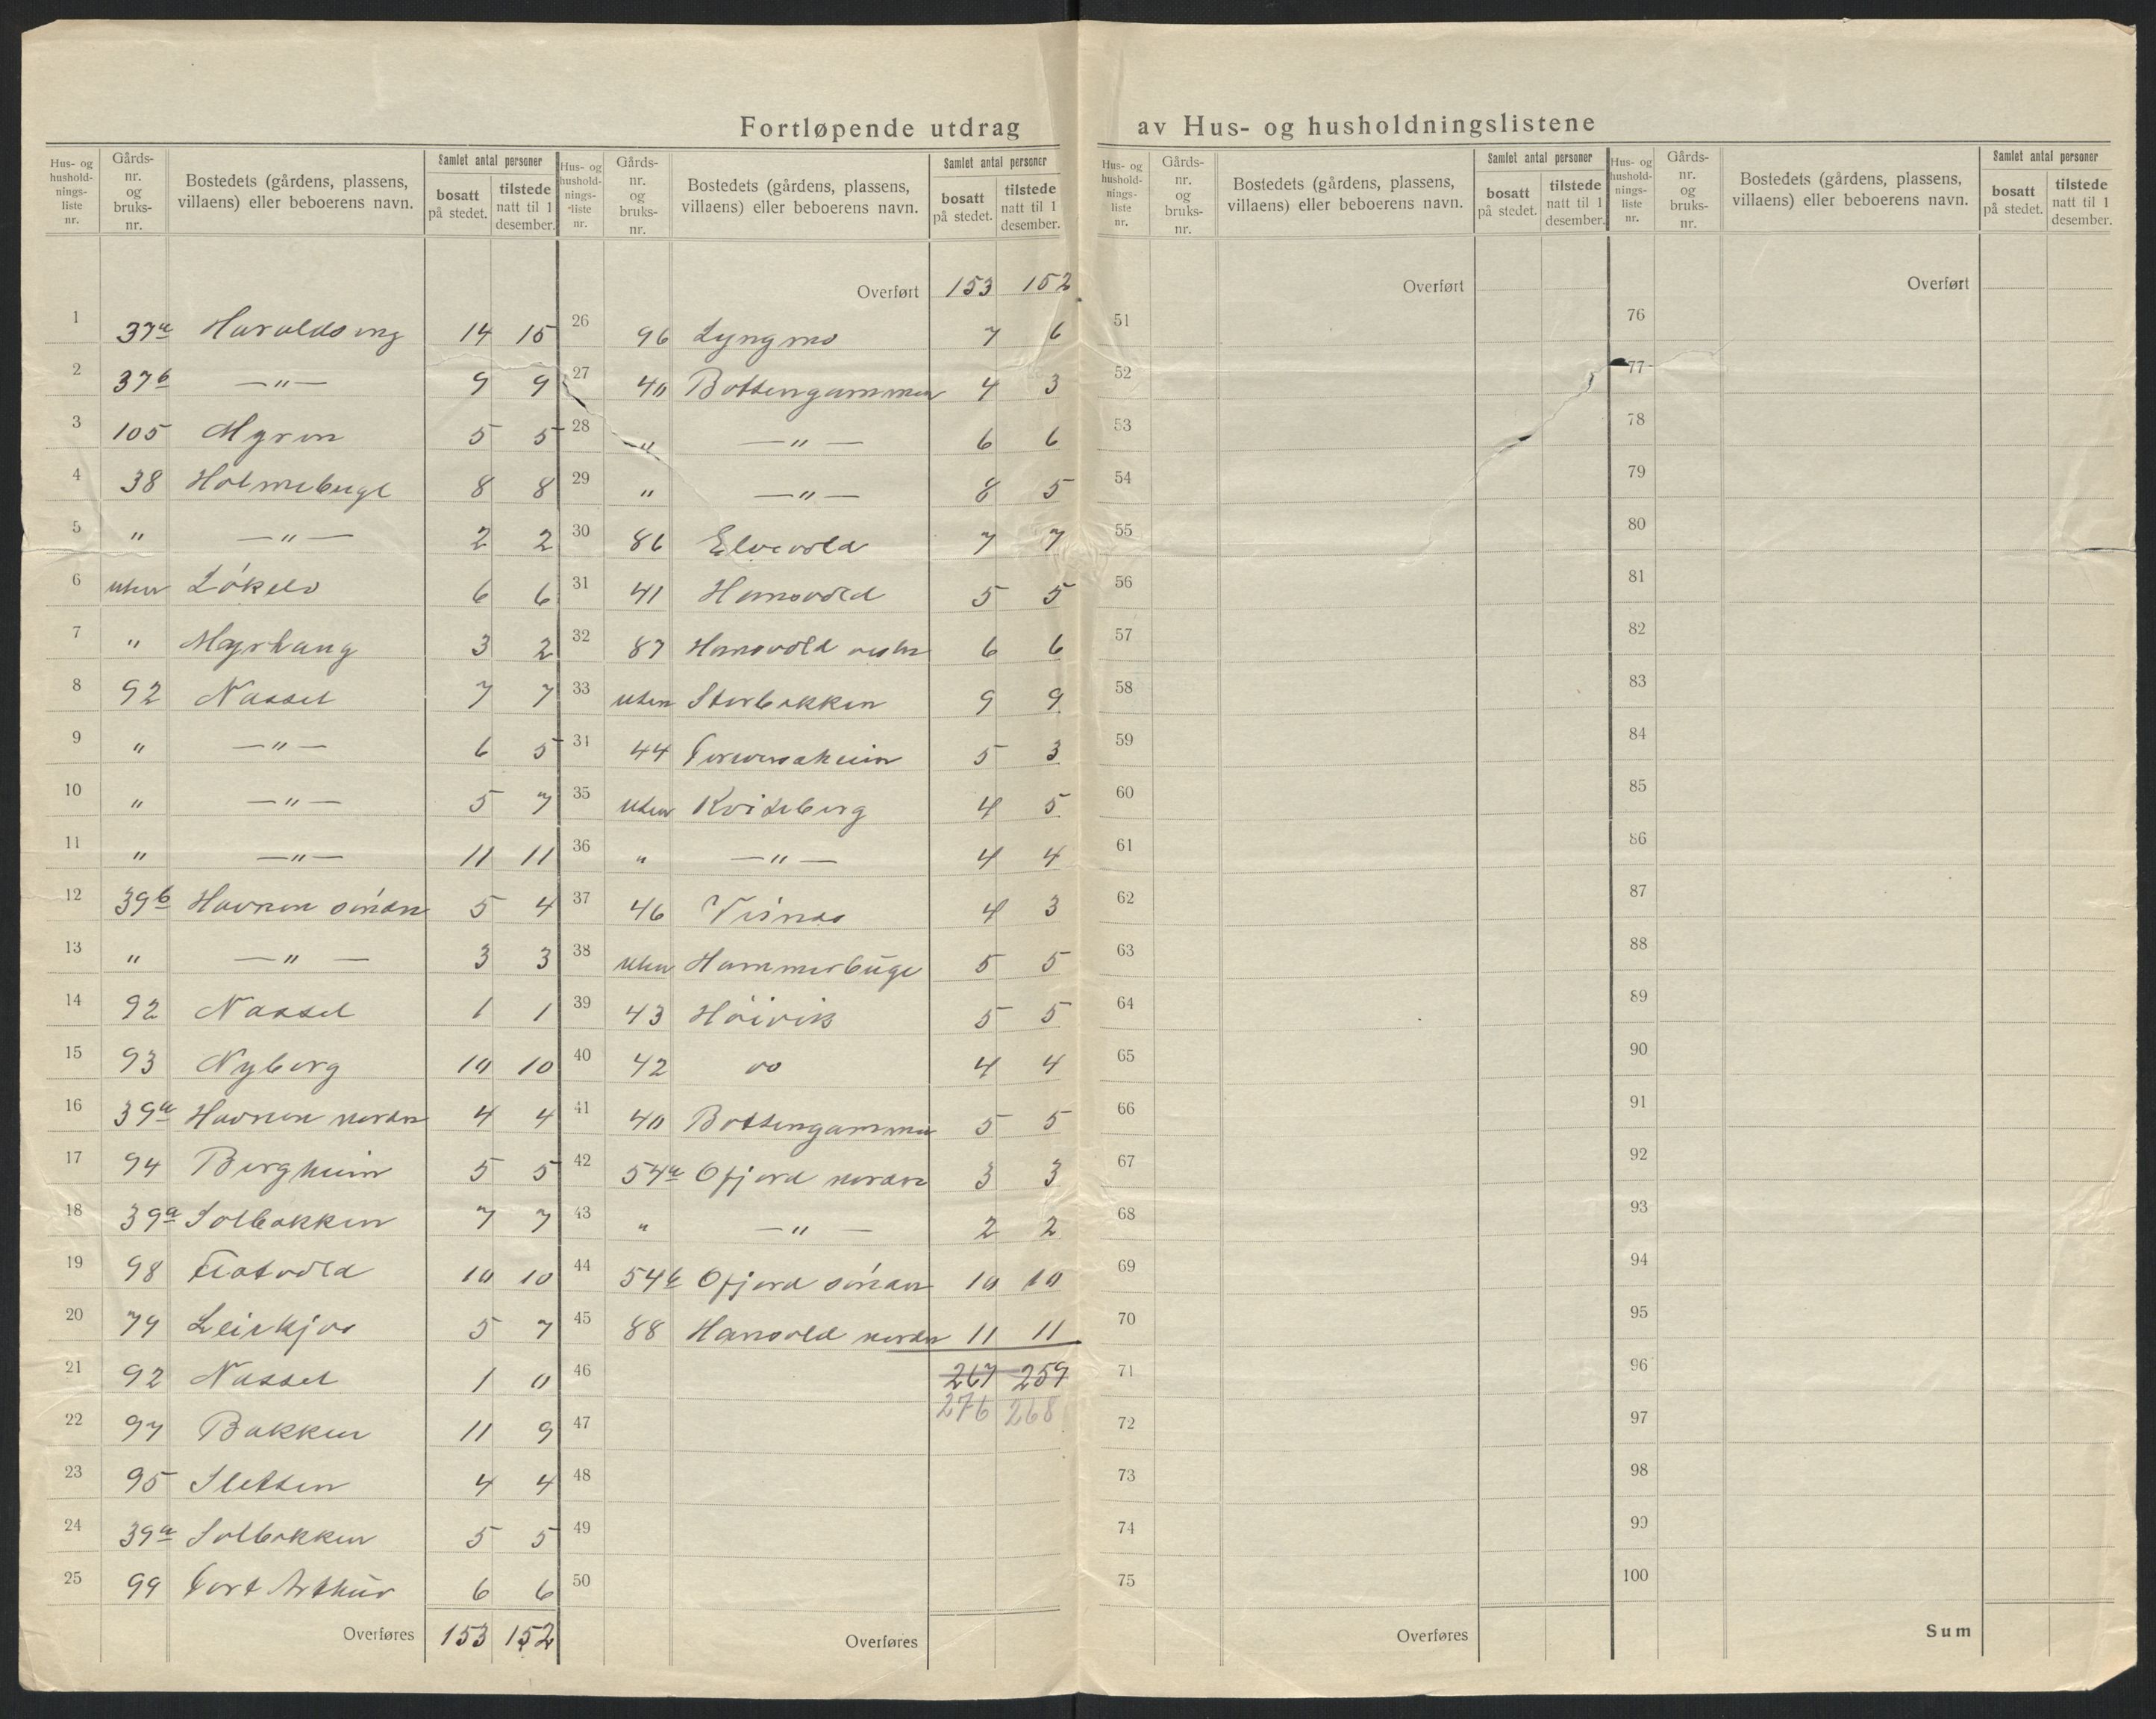 Fortløpende utdrag av Hus- og husholdningslistene
Hus- og husholdningsliste nr. Gårds-nr. og bruks-nr. Bostedets (gårdens, plassens, villaens) eller beboerens navn. Samlet antal personer bosatt på stedet. tilstede natt til 1 desember.
1 37a Haraldseng 14 15
2 37b —"— 9 9
3 105 Myren 5 5
4 38 Holmebugt 8 8
5 " —"— 2 2
6 uten Løkelv 6 6
7 " Myrhaug 3 2
8 92 Nasset 7 7
9 " —"— 6 5
10 " —"— 5 7
11 " —"— 11 11
12 39b Havnen søndre 5 4
13 " —"— 3 3
14 92 Nasset 1 1
15 93 Nyborg 10 10
16 39a Havnen nordre 4 4
17 94 Bergheim 5 5
18 39a Solbakken 7 7
19 98 Flatvold 10 10
20 79 5 7
21 92 Nasset 1 0
22 97 Bakken 11 9
23 95 Sletten 4 4
24 39a Solbakken 5 5
25 99 Port Arthur 6 6
Overføres 153 152
Hus- og husholdningsliste nr. Gårds-nr. og bruks-nr. Bostedets (gårdens, plassens, villaens) eller beboerens navn. Samlet antal personer bosatt på stedet. tilstede natt til 1 desember.
Overført 153 152
26 96 Lyngmo 7 6
27 40 Bottengammen 4 3
28 " —"— 6 6
29 " —"— 8 5
30 86 Elvevold 7 7
31 41 Hansvold 5 5
32 87 Hansvold vestre 6 6
33 uten Storbakken 9 9
34 44 5 3
35 uten Kviteberg 4 5
36 " —"— 4 4
37 46 Visnes 4 3
38 uten Hammerbugt 5 5
39 43 Høivik 5 5
40 42 do 4 4
41 40 Bottengammen 5 5
42 54a Ofjord nordre 3 3
43 " —"— 2 2
44 54b Ofjord søndre 10 10
45 88 Hansvold nordre 11 11
46 267 259
276 268
47
48
49
50
Overføres
Hus- og husholdningsliste nr. Gårds-nr. og bruks-nr. Bostedets (gårdens, plassens, villaens) eller beboerens navn. Samlet antal personer bosatt på stedet. tilstede natt til 1 desember.
Overført
51
52
53
54
55
56
57
58
59
60
61
62
63
64
65
66
67
68
69
70
71
72
73
74
75
Overføres
Hus- og husholdningsliste nr. Gårds-nr. og bruks-nr. Bostedets (gårdens, plassens, villaens) eller beboerens navn. Samlet antal personer bosatt på stedet. tilstede natt til 1 desember.
Overført
76
77
78
79
80
81
82
83
84
85
86
87
88
89
90
91
92
93
94
95
96
97
98
99
100
Sum